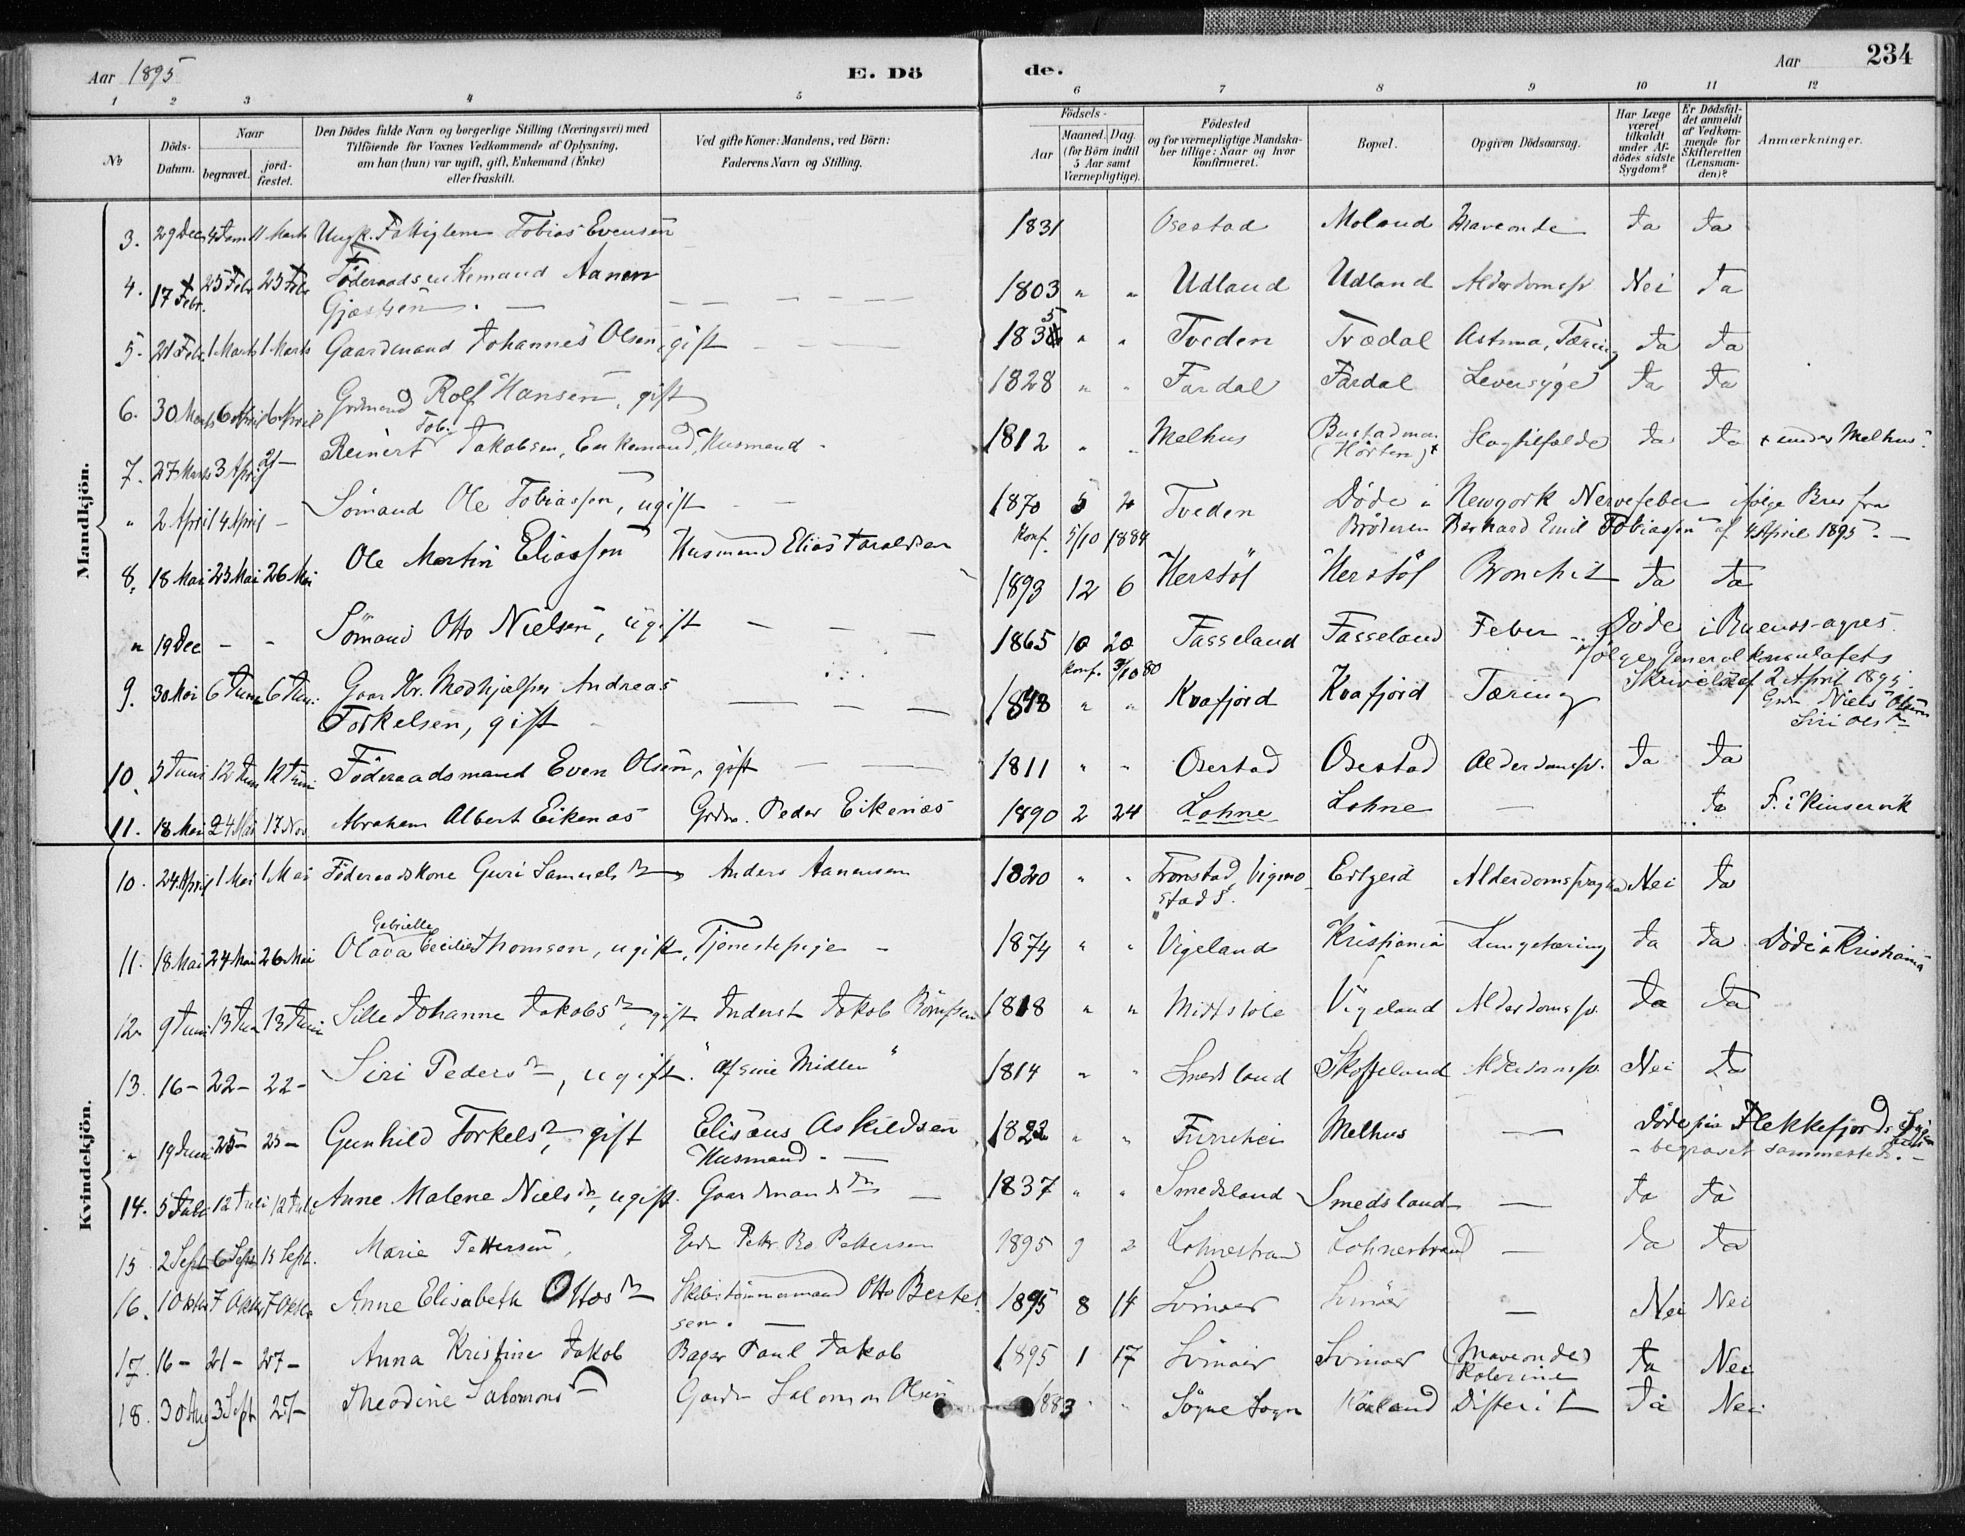 Aar 1895 E. Dö de. Aar 234
1 2 3 4 5 6 7 8 9 10 11 12
No Döds-Datum. Naar begravet. jord-fæstet. Den Dödes fulde Navn og borgerlige Stilling (Næringsvei) med Tilföiende for Voxnes Vedkommende af Oplysning, om han (hun) var ugift, gift, Enkemand (Enke) eller fraskilt. Ved gifte Koner: Mandens, ved Börn: Faderens Navn og Stilling. Födsels- Aar Maaned. Dag. (for Börn indtil 5 Aar samt Værnepligtige). Födested og for værnepligtige Mandskaber tillige: Naar og hvor konfirmeret. Bopæl. Opgiven Dödsaarsag. Har Læge været tilkaldt under Afdödes sidste Sygdom? Er Dödsfaldet anmeldt af Vedkommende for Skifteretten (Lensmanden)? Anmærkninger.
Mandkjön.
3. 29 Dec 4 Jan 11 Marts Ungk. Fattiglem Tobias Evensen 1831 Osestad Moland Maveonde Ja Ja
4. 17 Febr. 25 Febr 25 Febr Föderaadsenkemand Aanen 1803 " " Udland Udland Alderdomssv Nei Ja
Gjæshen . —
5. 21 Febr. 1 Marts 1 Marts Gaardmand Johannes Olsen, gift 1835 " " Tveden Trædal Astma, Tæring Ja Ja
6. 30 Marts 6 April 6 April Grdmand Rolf Hansen, gift 1828 " " Fardal Fardal Leversyge Ja Ja
7. 27 Marts 3 April 21 — Reinert Tob. Jakobsen, Enkemand, Husmand 1812 " " Melhus Bustadmo (Hörten)x Slagtilfælde Ja Ja x under Melhus.
" 2 April 4 April — Sömand Ole Tobiassen, ugift — 1870 5 2 Tveden Döde i Newyork Nervefeber ifölge Brev fra
Konf. 5/10 1884 Broderen Berhard Emil Tobiassen af 4 April 1895. —
8. 18 Mai 23 Mai 26 Mai Ole Martin Eliassen Husmand Elias Taraldsen 1893 12 6 Herstöl Herstöl Bronchit Ja Ja
" 19 Dec — - Sömand Otto Nielsen, ugift — — — 1865 10 20 Fasseland Fasseland Feber .. Döde i Buenos-ayres
Konf. 3/10 80 ifölge Generalkonsulatets
9. 30 Mai 6 Juni 6 Juni. Gaardbr. Medhjælper Andreas 1848 " " Kvafjord Kvafjord Tæring Skrivelse af 2 April 1895
Torkelsen, gift Grdm Niels Olsens
Siri Olsdr
10. 3 Juni 12 Juni 12 Juni Föderaadsmand Even Olsen, gift — — 1811 " " Osestad Osestad Alderdomssv. Ja Ja
11. 18 Mai 24 Mai 17 Nov Abraham Albert Eikenæs Grdm. Peder Eikenæs 1890 2 24 Lohne Lohne — Ja F. i Kinservik
Kvindekjön.
10. 24 April 1 Mai 1 Mai Föderaadskone Guri Samuelsdr Anders Aanensen 1820 " " Tronstad, Vigmostads. Ertzeid Alderdomssvaghed Nei Ja
11. 18 Mai 24 Mai 26 Mai Olava Gabrielle Cecilie Thomsen, ugift, Tjenestepige - 1874 " " Vigeland Kristiania Lungetæring Ja Ja Döde i Kristiania
12. 9 Juni 13 Juni 13 Juni Sille Johanne Jakobsdr, gift Inderst Jakob Börufsen 1818 " " Midtstöle Vigeland Alderdomssv. Ja Ja
13. 16 — 22 — 22 — Siri Pedersdr, ugift. "af sine Midler" 1814 " " Smedsland Skoffeland Alderdomssv. Nei Ja
" 19 Juni 25 — 25 — Gunhild Torkelsdr, gift Elisæus Askildsen 1822 " " Furrehei Melhus — Döde paa Flekkefjords Sygehus
Husmand. — - begravet sammesteds. -
14. 5 Juli 12 Juli 12 Juli Anne Malene Nielsdr, ugift. Gaardmandsdr — 1837 " " Smedsland Smedsland — Ja Ja
15 2 Sept 6 Sept 15 Sept. Marie Pettersen, Grdm Petter Bo Pettersen 1895 9 2 Lohnestrand Lohnestrand — Ja Ja
16. 1 Oktbr 7 Oktbr 7 Oktbr Anne Elisabeth Ottosdr Skibstömmermand Otto Bertelsen. — 1895 8 14 Svinöer Svinöer — Nei Nei
17. 16 — 21 — 27 — Anna Kristine Jakob Bager Paul Jakob 1895 1 17 Svinöer Svinöer (Maveonde) Kolerine Ja Nei
18. 30 Aug 3 Sept 27 — Theodine Salomonsdr Gaardm Salomon Olsen 1883 " " Sögne Sogn Difterit Ja Nei